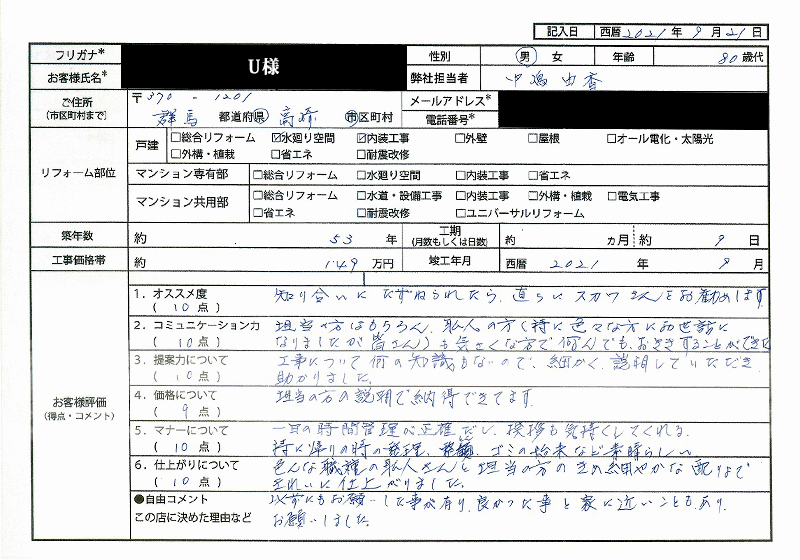 記入日 西暦 2021 年 9 月 21 日
フリガナ* U様 性別 男 女 年齢 80 歳代
お客様氏名* 弊社担当者 中嶋 由香
ご住所 (市区町村まで) 〒370-1201 メールアドレス*
群馬 都道府県 高崎 市区町村 電話番号*
リフォーム部位
戸建 □総合リフォーム ☑水廻り空間 ☑内装工事 □外壁 □屋根 □オール電化・太陽光
□外構・植栽 □省エネ □耐震改修
マンション専有部 □総合リフォーム □水廻り空間 □内装工事 □省エネ
マンション共用部 □総合リフォーム □水道・設備工事 □内装工事 □外構・植栽 □電気工事
□省エネ □耐震改修 □ユニバーサルリフォーム
築年数 約 53 年 工期 (月数もしくは日数) 約 ヵ月 約 9 日
工事価格帯 約 149 万円 竣工年月 西暦 2021 年 9 月
お客様評価 (得点・コメント)
1．オススメ度 知り合いにたずねられたら、直ちにスカワさんをお勧めします
( 10 点 )
2．コミュニケーション力 担当の方はもちろん、職人の方(特に色々な方にお世話に
( 10 点 ) なりましたが皆さん)も気さくな方で何んでもおききすることができた
3．提案力について 工事について何の知識もないので、細かく説明していただき
( 10 点 ) 助かりました。
4．価格について 担当の方の説明で納得できてます。
( 9 点 )
5．マナーについて 一日の時間管理が正確だし、挨拶も気持くしてくれる。
( 10 点 ) 特に帰りの時の整理、ゴミの始末など素晴らしい。
6．仕上がりについて 色んな職種の職人さんと担当の方のきめ細やかな配りで
( 10 点 ) きれいに仕上がりました。
●自由コメント 以前にもお願いした事が有り、良かった事と家に近いこともあり、
この店に決めた理由など お願いしました。